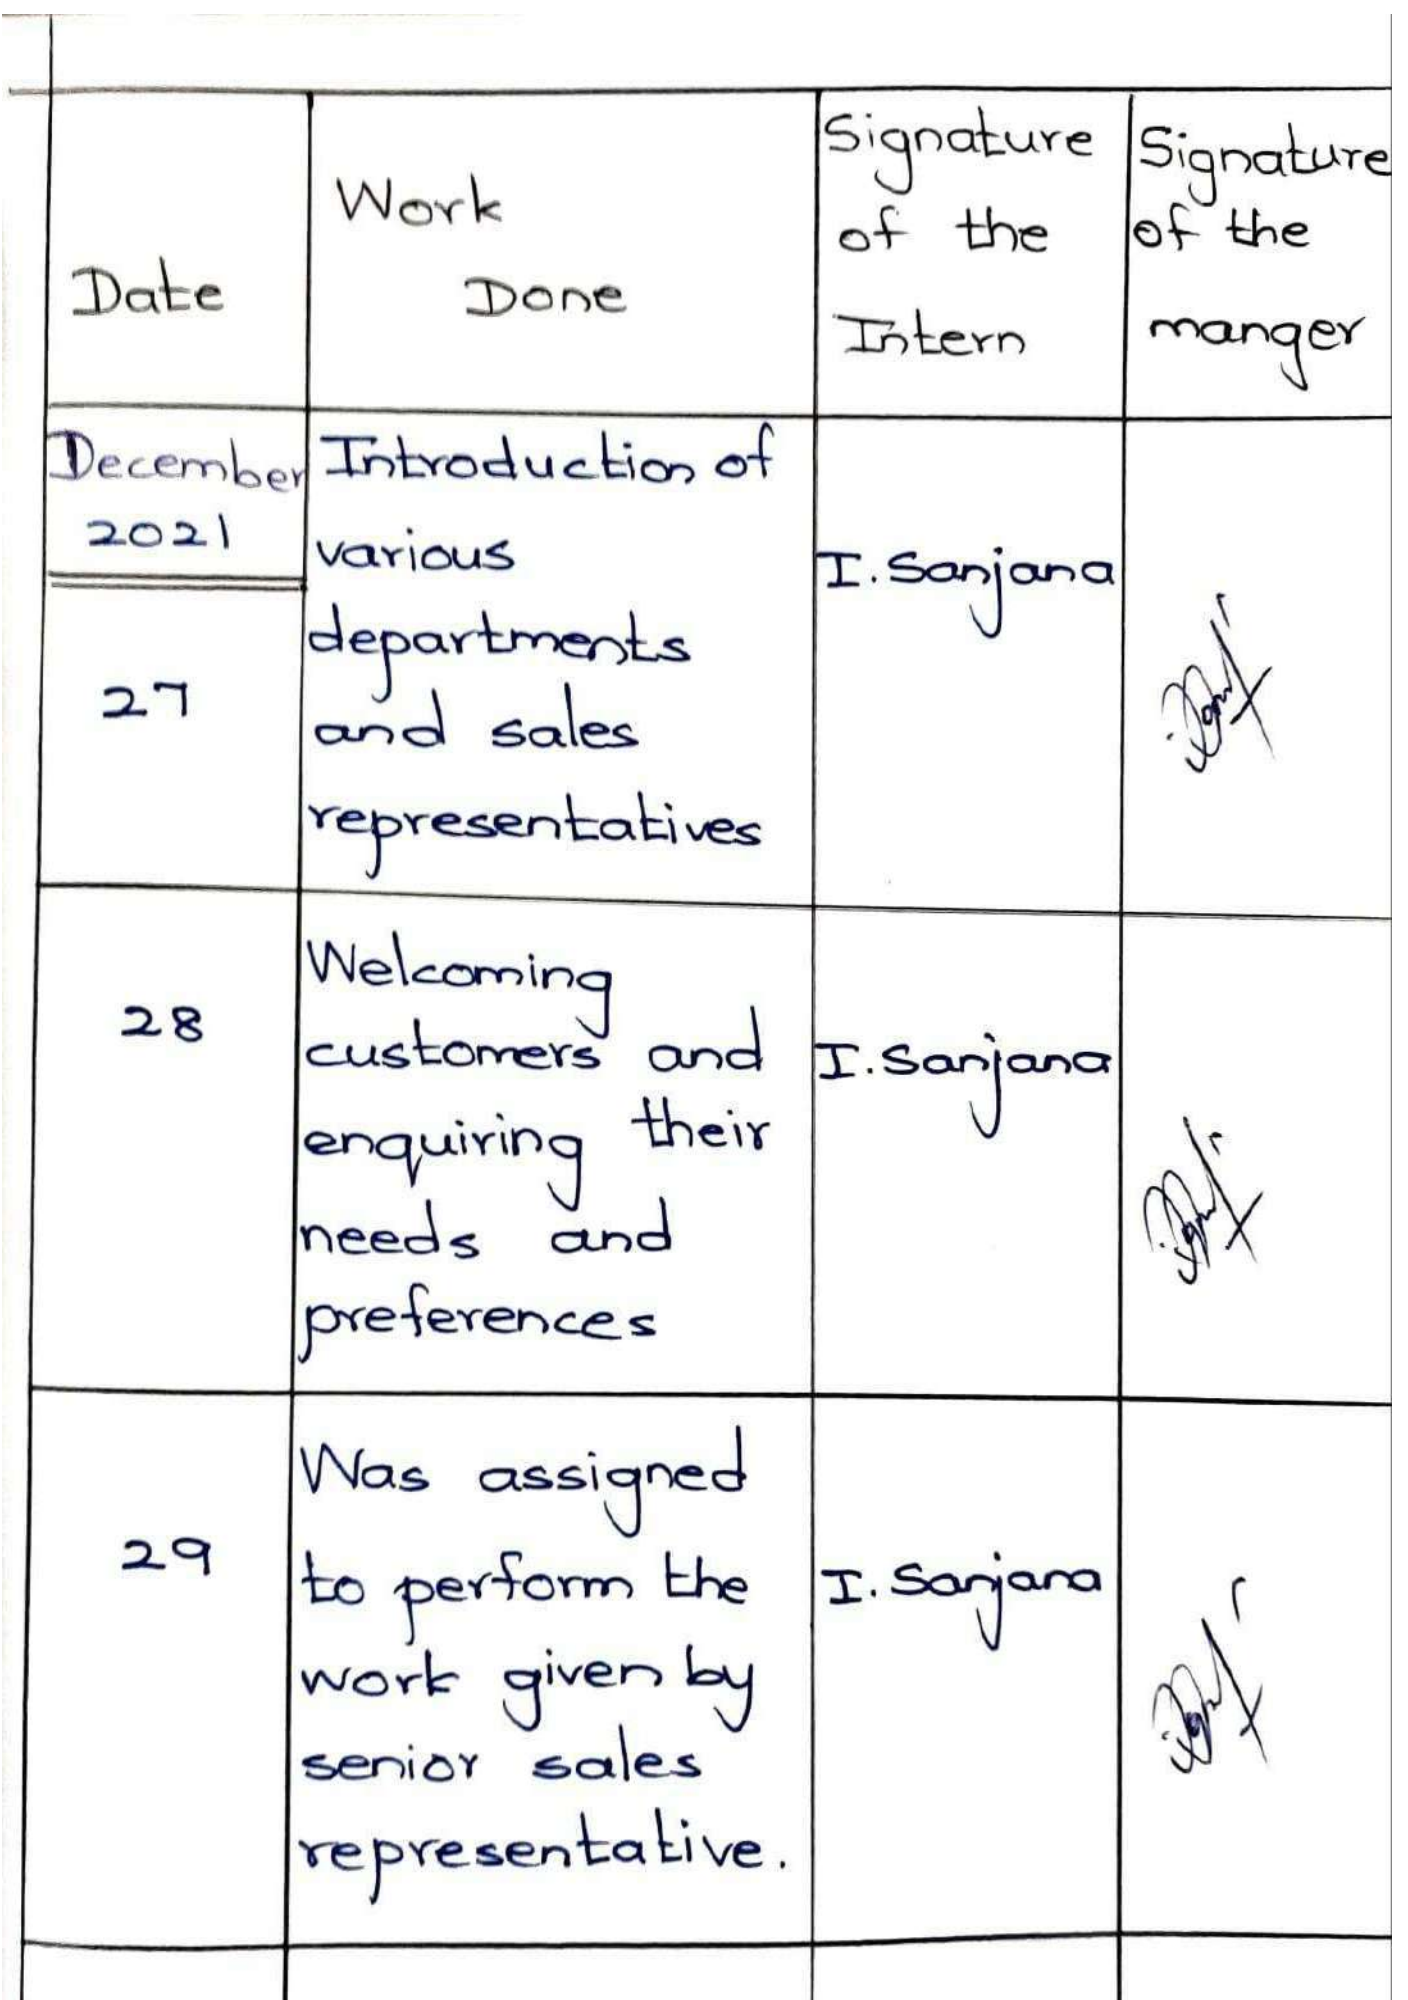 Date
Work
Done
Signature
of the
Intern
Signature
of the
manger
December
2021
27
Introduction of
various
departments
and sales
representatives
I. Sanjana
28
Welcoming
customers and
enquiring their
needs and
preferences
I. Sanjana
29
Was assigned
to perform the
work given by
senior sales
representative.
I. Sanjana